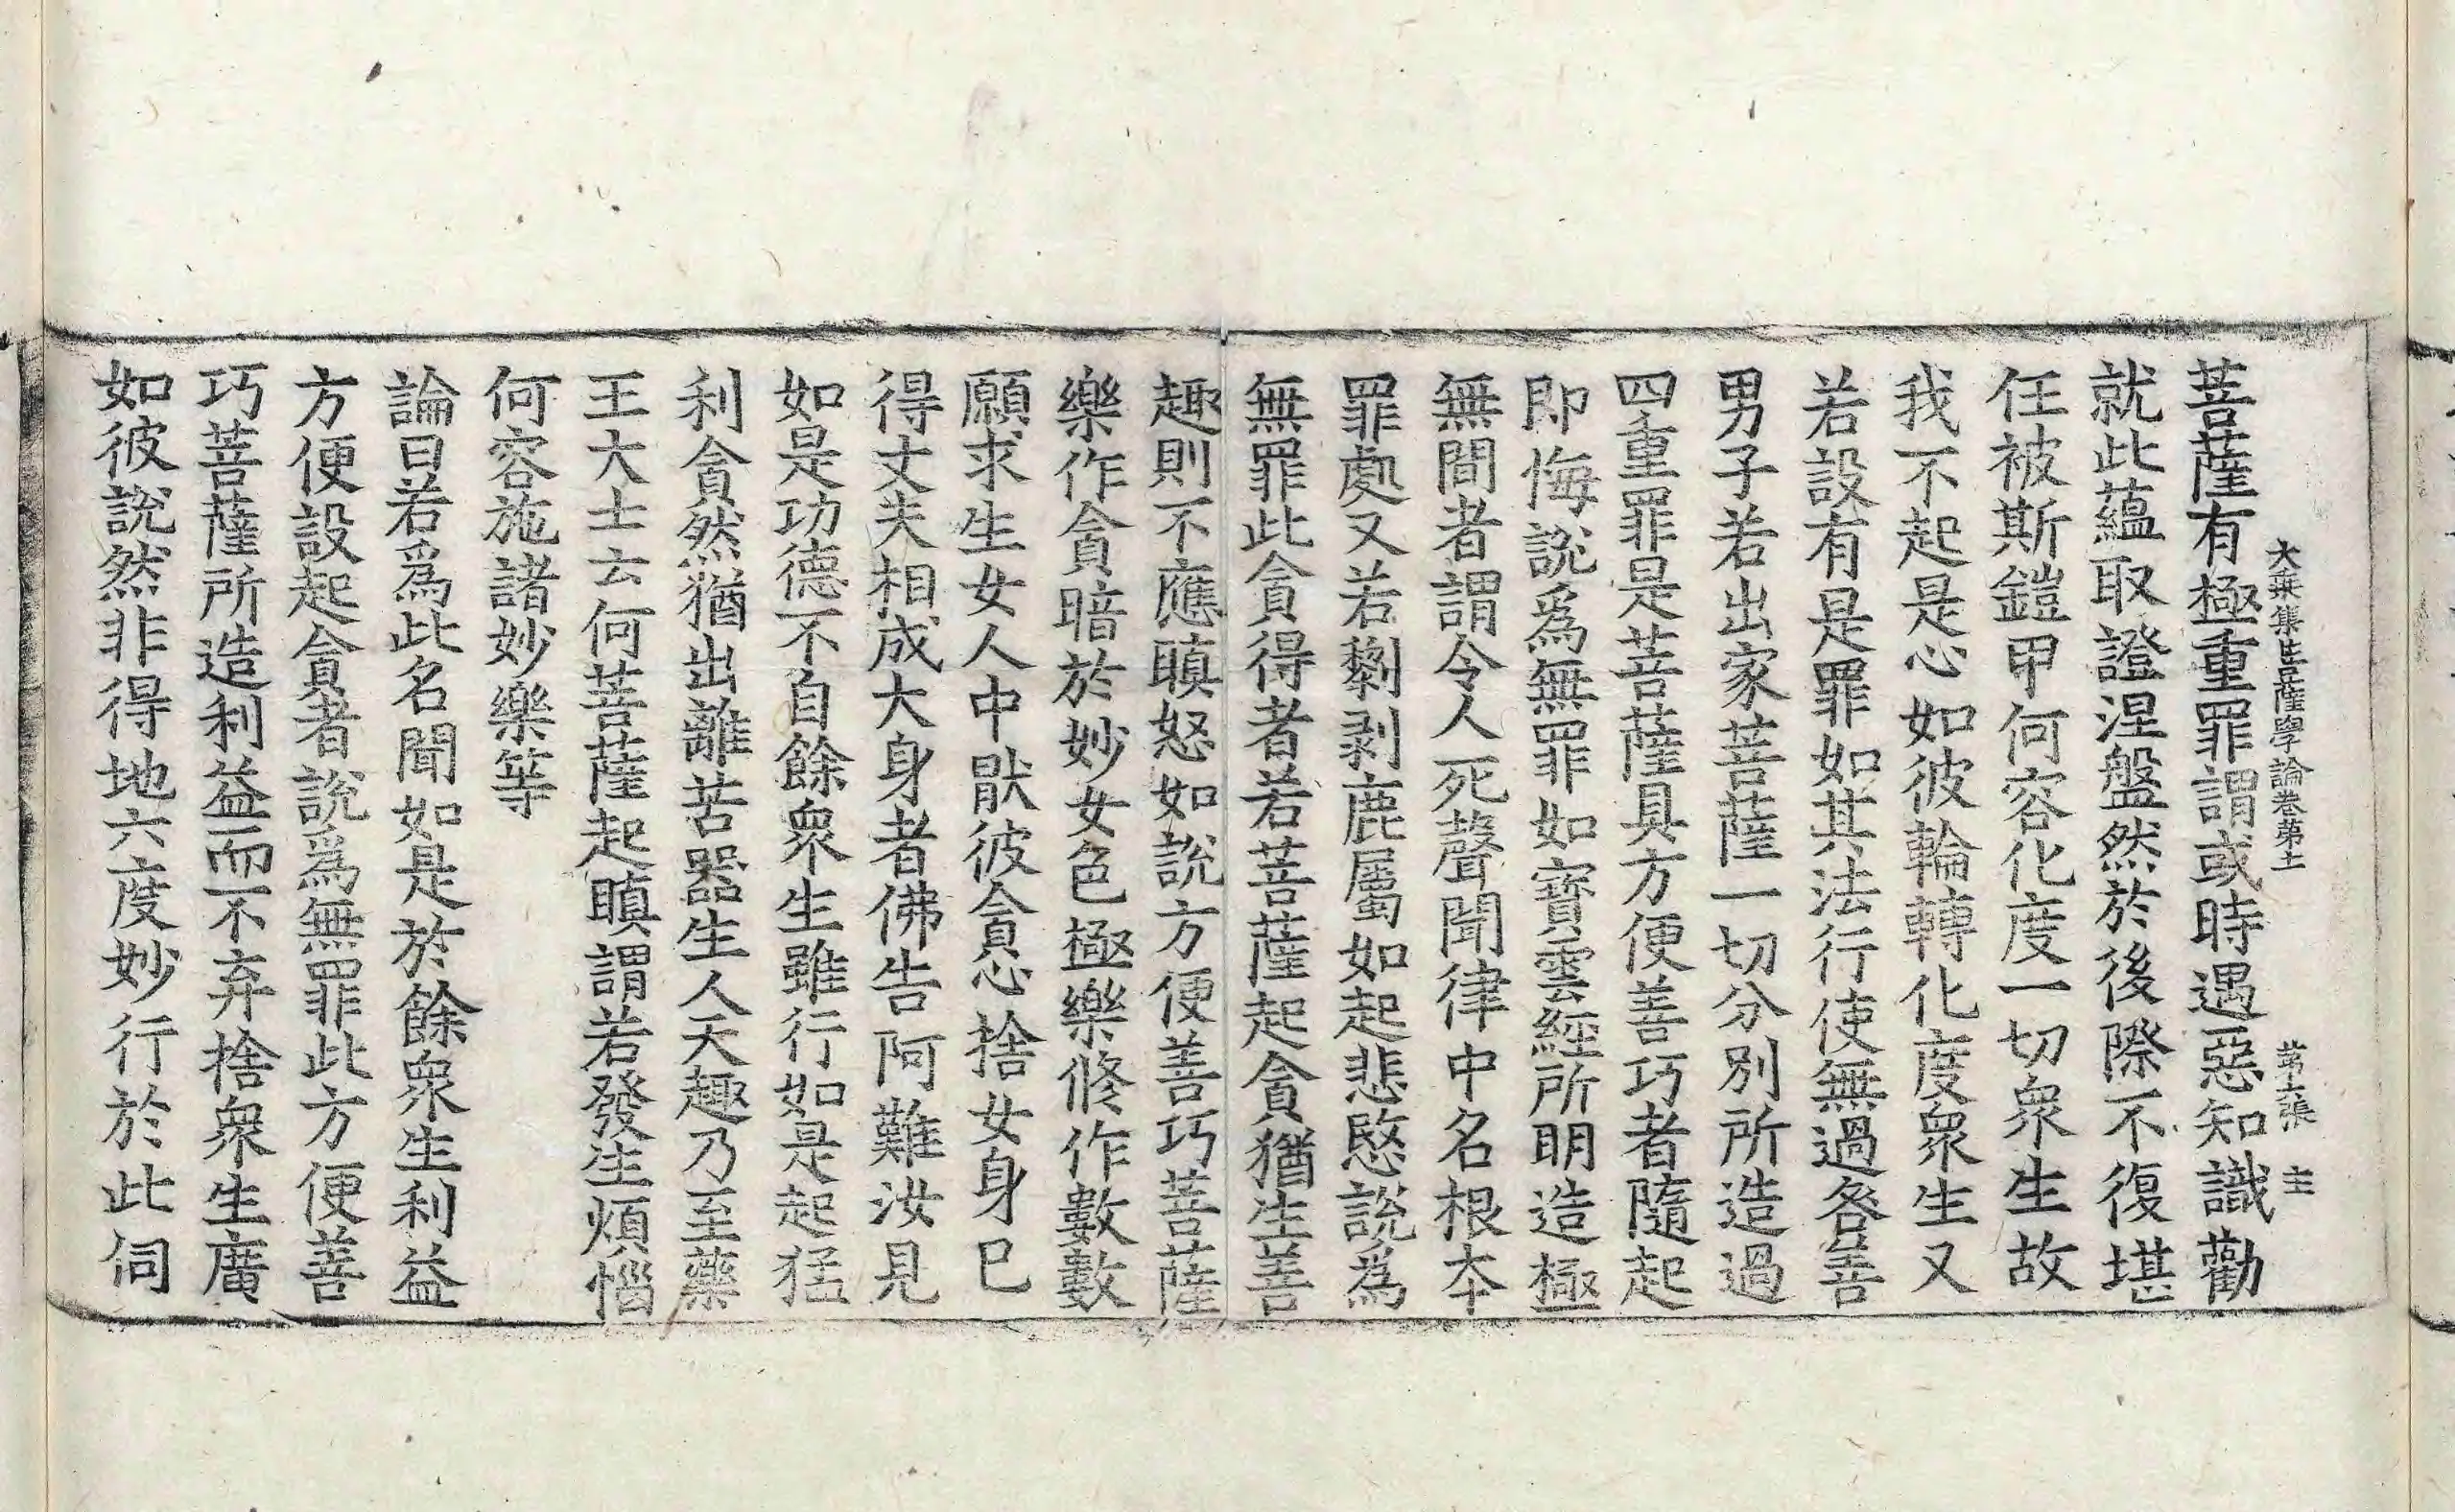 大乗集菩薩學論卷第十 第十張 主
菩薩有極重罪謂或時遇惡知識勸
就此蘊取證涅盤然於後際不復堪
任被斯鎧甲何容化度一切衆生故
我不起是心如彼輪轉化度衆生又
若設有是罪如其法行使無過咎善
男子若出家菩薩一切分別所造過
四重罪是菩薩具方便善巧者隨起
即悔說爲無罪如寶雲經所明造極
無間者謂令人死聲聞律中名根本
罪處又若剺剥鹿屬如起悲愍說爲
無罪此貪得者若菩薩起貪猶生善
趣則不應瞋怒如說方便善巧菩薩
樂作貪暗於妙女色極樂修作數數
願求生女人中猒彼貪心捨女身巳
得丈夫相成大身者佛告阿難汝見
如是功德不自餘衆生雖行如是起猛
利貪然猶出離苦器生人天趣乃至藥
王大士云何菩薩起瞋謂若發生煩惱
何容施諸妙樂等
論曰若爲此名聞如是於餘衆生利益
方便設起貪者說爲無罪此方便善
巧菩薩所造利益而不弃捨衆生廣
如彼說然非得地六度妙行於此伺